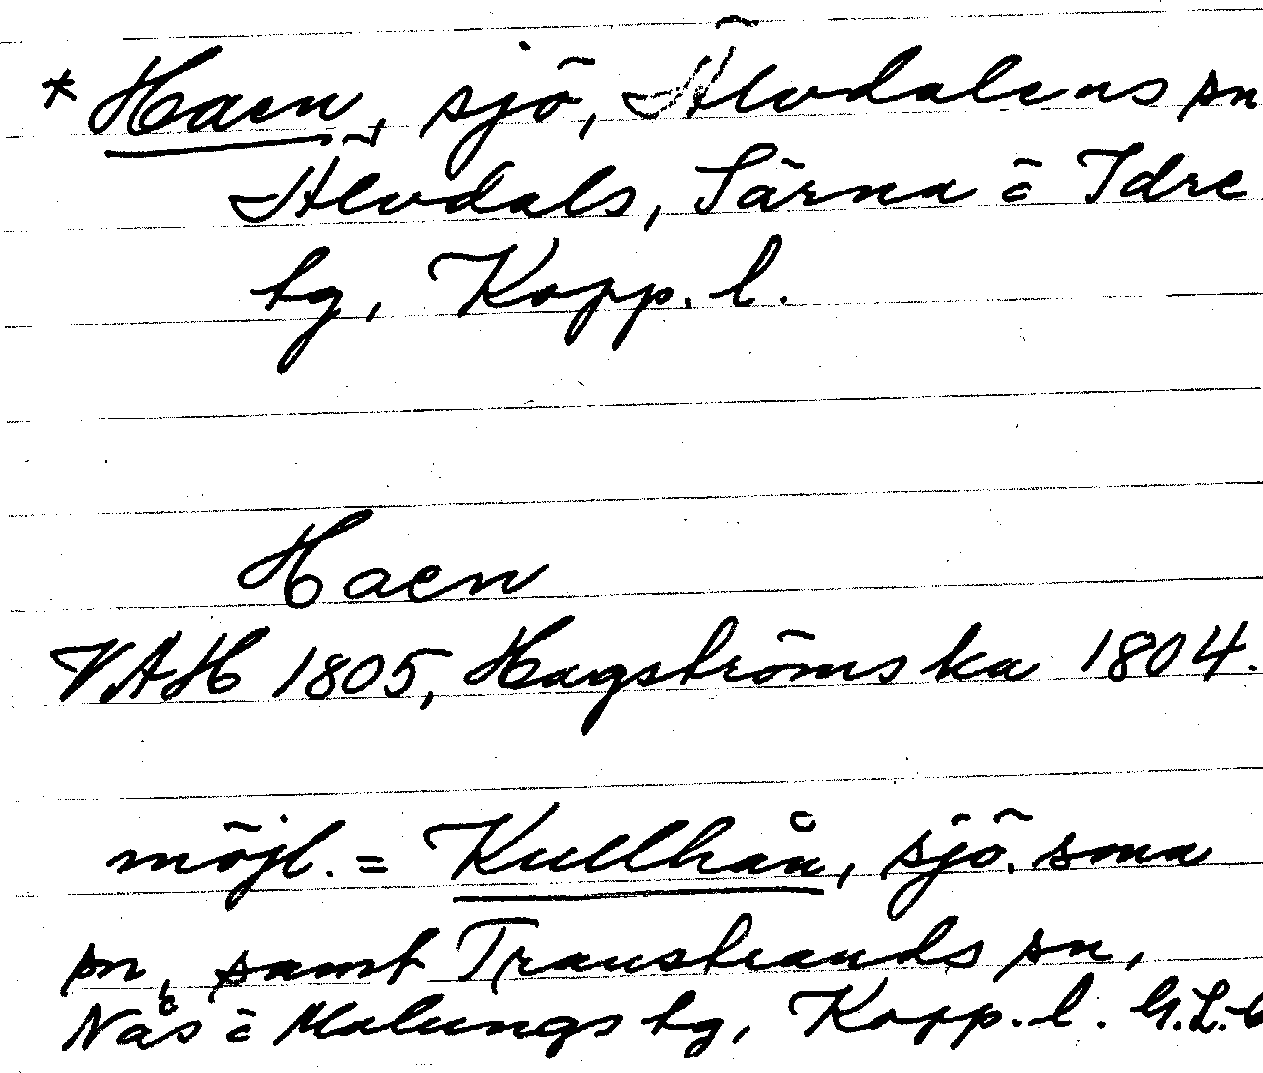 * Haen, sjö, Älvdalens sn
Älvdals, Särna o Idre
tg, Kopp. l.
Haen
VAH 1805, Hagströmska 1804.
möjl. = Kullhån, sjö. sma
sn, samt Transtrands sn,
Nås o Malungs tg, Kopp. l. G.L.